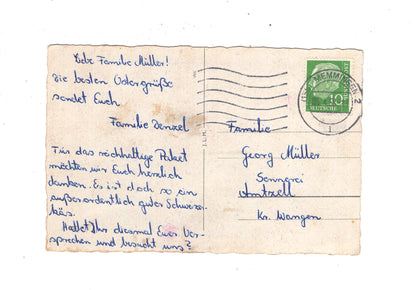 Liebe Familie Müller!
Die besten Ostergrüße
sendet Euch
Familie Denzel
Für das reichhaltige Paket
möchten wir Euch herzlich
danken. Es ist doch so ein
außerordentlich guter Schweizer-
käs.
Haltet Ihr diesmal Euer Ver-
sprechen und besucht uns?
MEMMINGEN 2
10
DEUTSCHE
Familie
Georg Müller
Sennerei
Amtzell
Kr. Wangen